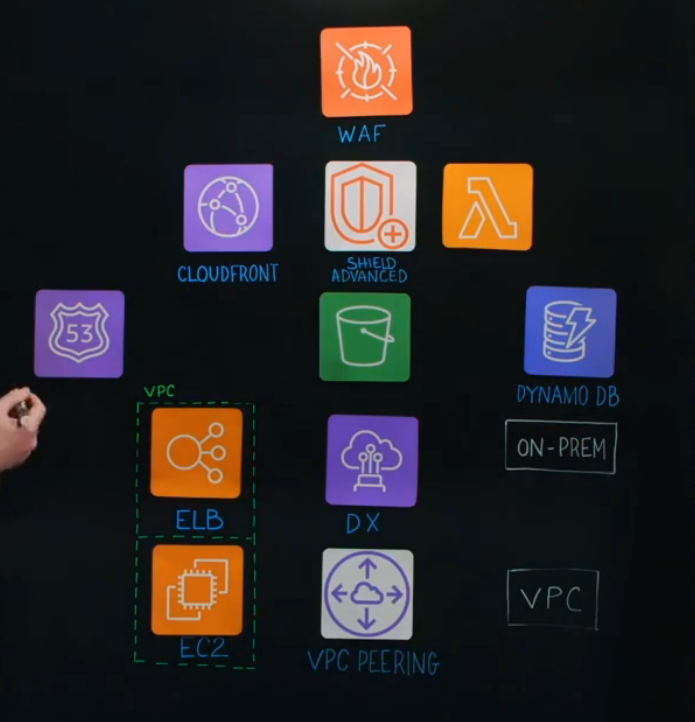 WAF
CLOUDFRONT
SHIELD
ADVANCED
53
DYNAMO DB
VPC
ON-PREM
ELB
DX
EC2
VPC PEERING
VPC